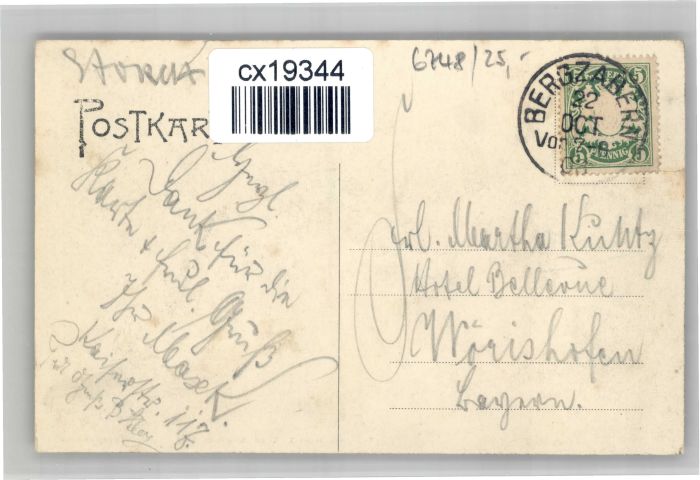 cx19344
6748/25,-
POSTKAR
BERGZABERN
22
OCT
5
5
5
PFENNIG
Herzl.
Dank für die
Karte + frdl. Gruß
Ihr Maxt.
Kaiserstr. 117.
Frl. Martha Kuntz
Hotel Bellevue
Wörishofen
Bayern.